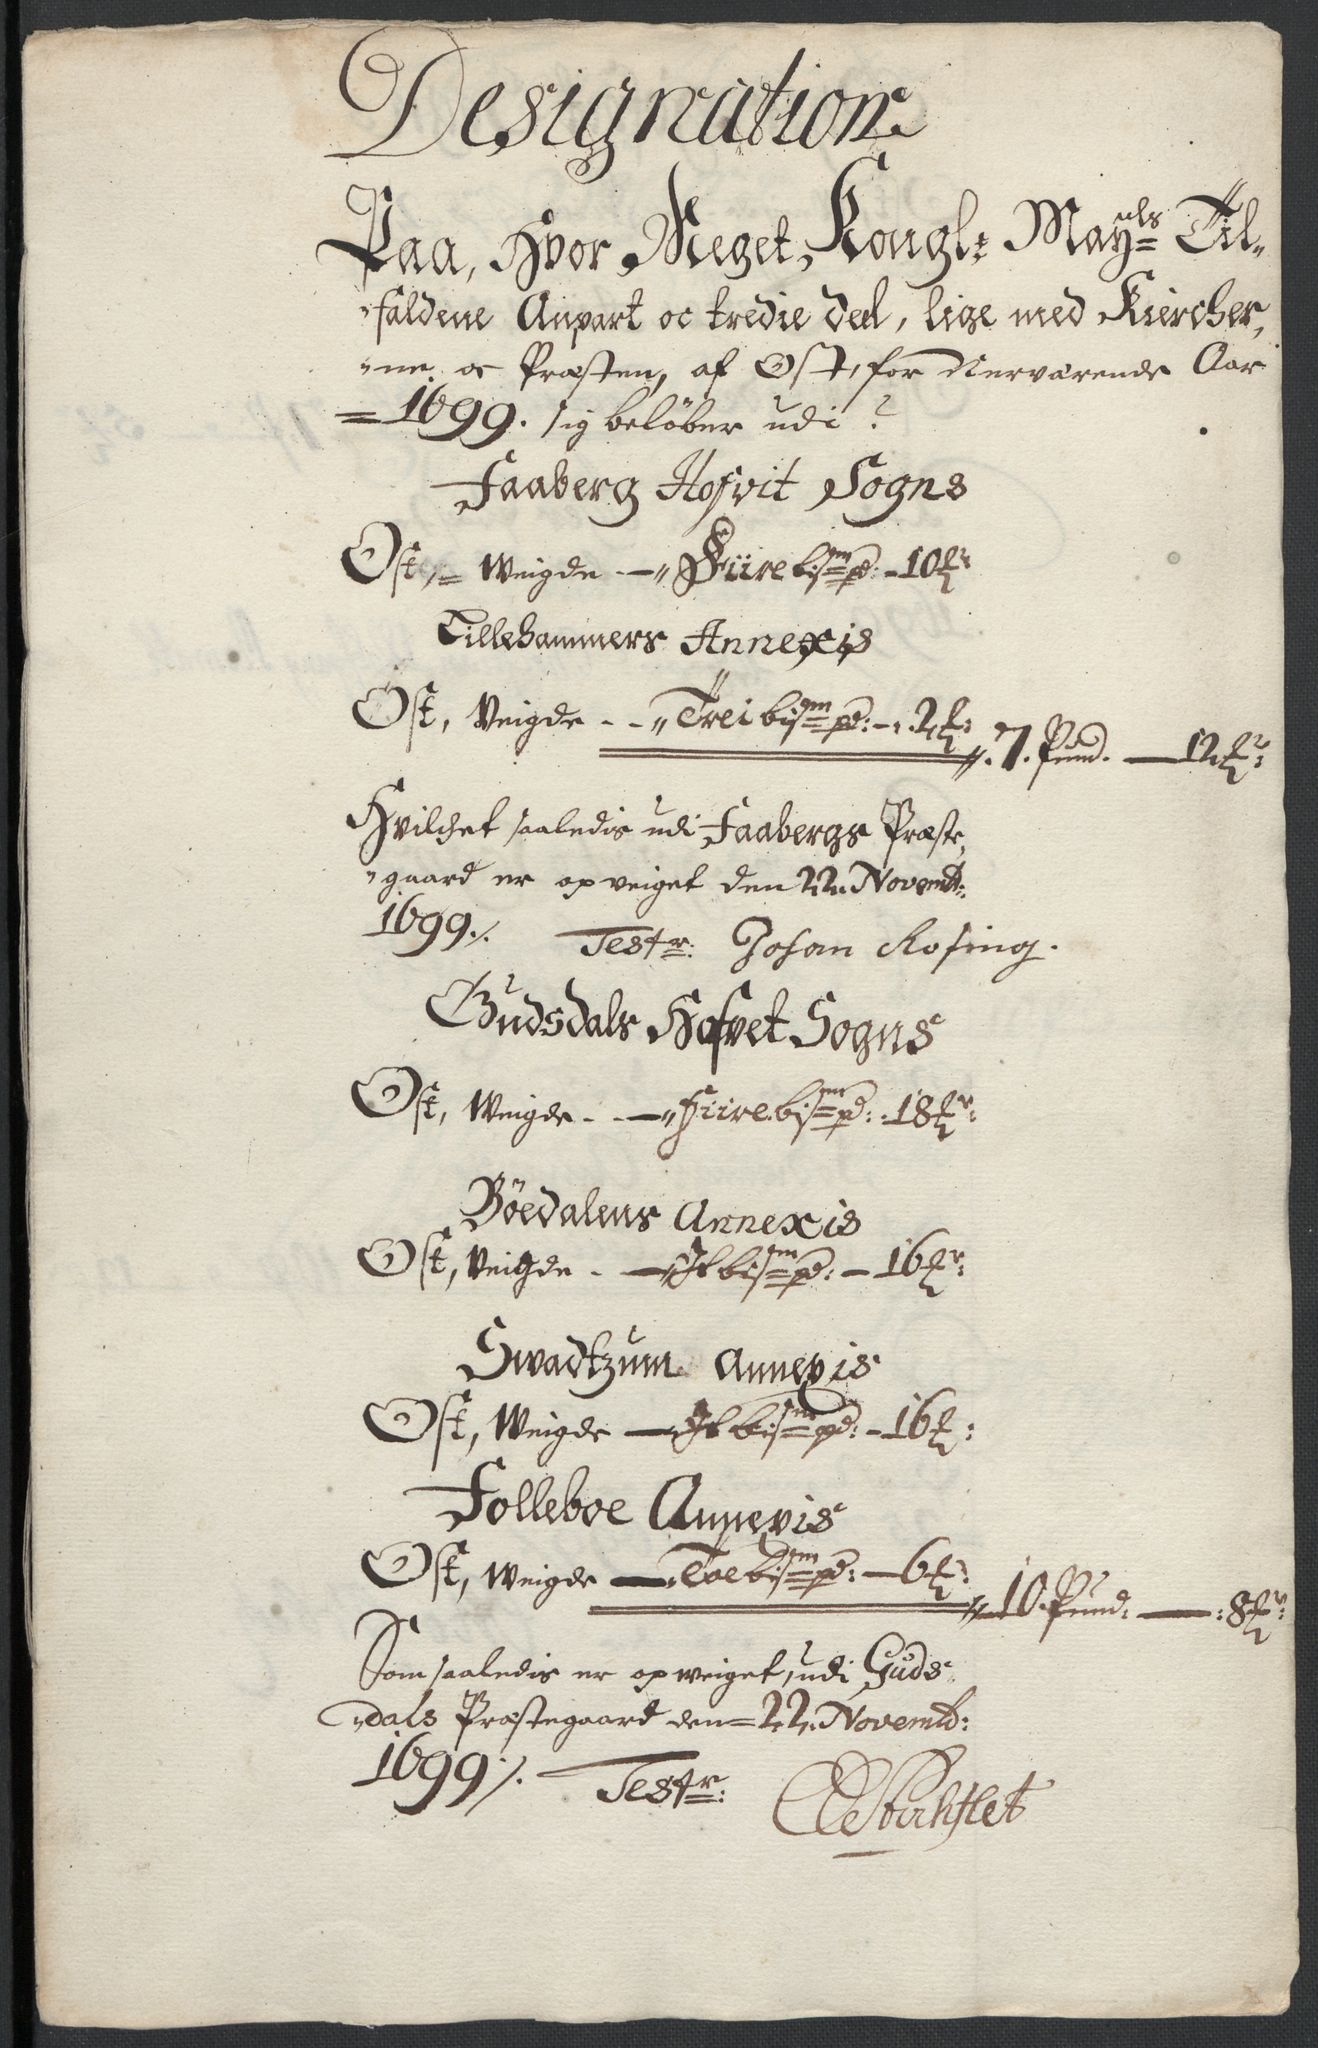 Designation
Paa, Hvor Meget, Kongl: Mayls Til-
faldene Anpart oc tredie deel, lige med Kircher,
ne oc Præsten, af Ost, for Nerværende Aar
1699. sig beløber udi?
Faaberg Hofvit Sogns
Ost, Weigde — Fiire bismpd: - 10 ℔r
Lillehammers Annexis
Ost, Veigde - - Trei bismpd: - 2 ℔:
7. Pund. — 12 ℔r:
Hvilchet saaledis udi Faabergs Præste,
gaard er opveiget den 22. Novemb:
1699 ./. Test r: Johan Rosing.
Gudsdals Hofvet Sogns
Ost, Weigde - - Fiire bismpd: - 18 ℔r:
Böedalens Annexis
Ost, Veigde - — Et bismpd: - 16 ℔r:
Swadtzum Annexis
Ost, Weigde — Et bismpd: - 16 ℔:
Folleboe Annexis
Ost, Weigde — Toe bismpd: — 6 ℔r:
10. Pund: — : 8 ℔r:
Som saaledis er opweiget, udi Guds
dals Præstegaard den 22. Novemb:
1699 ./. Test r: